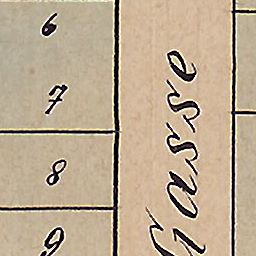 6
7
8
9
Gasse